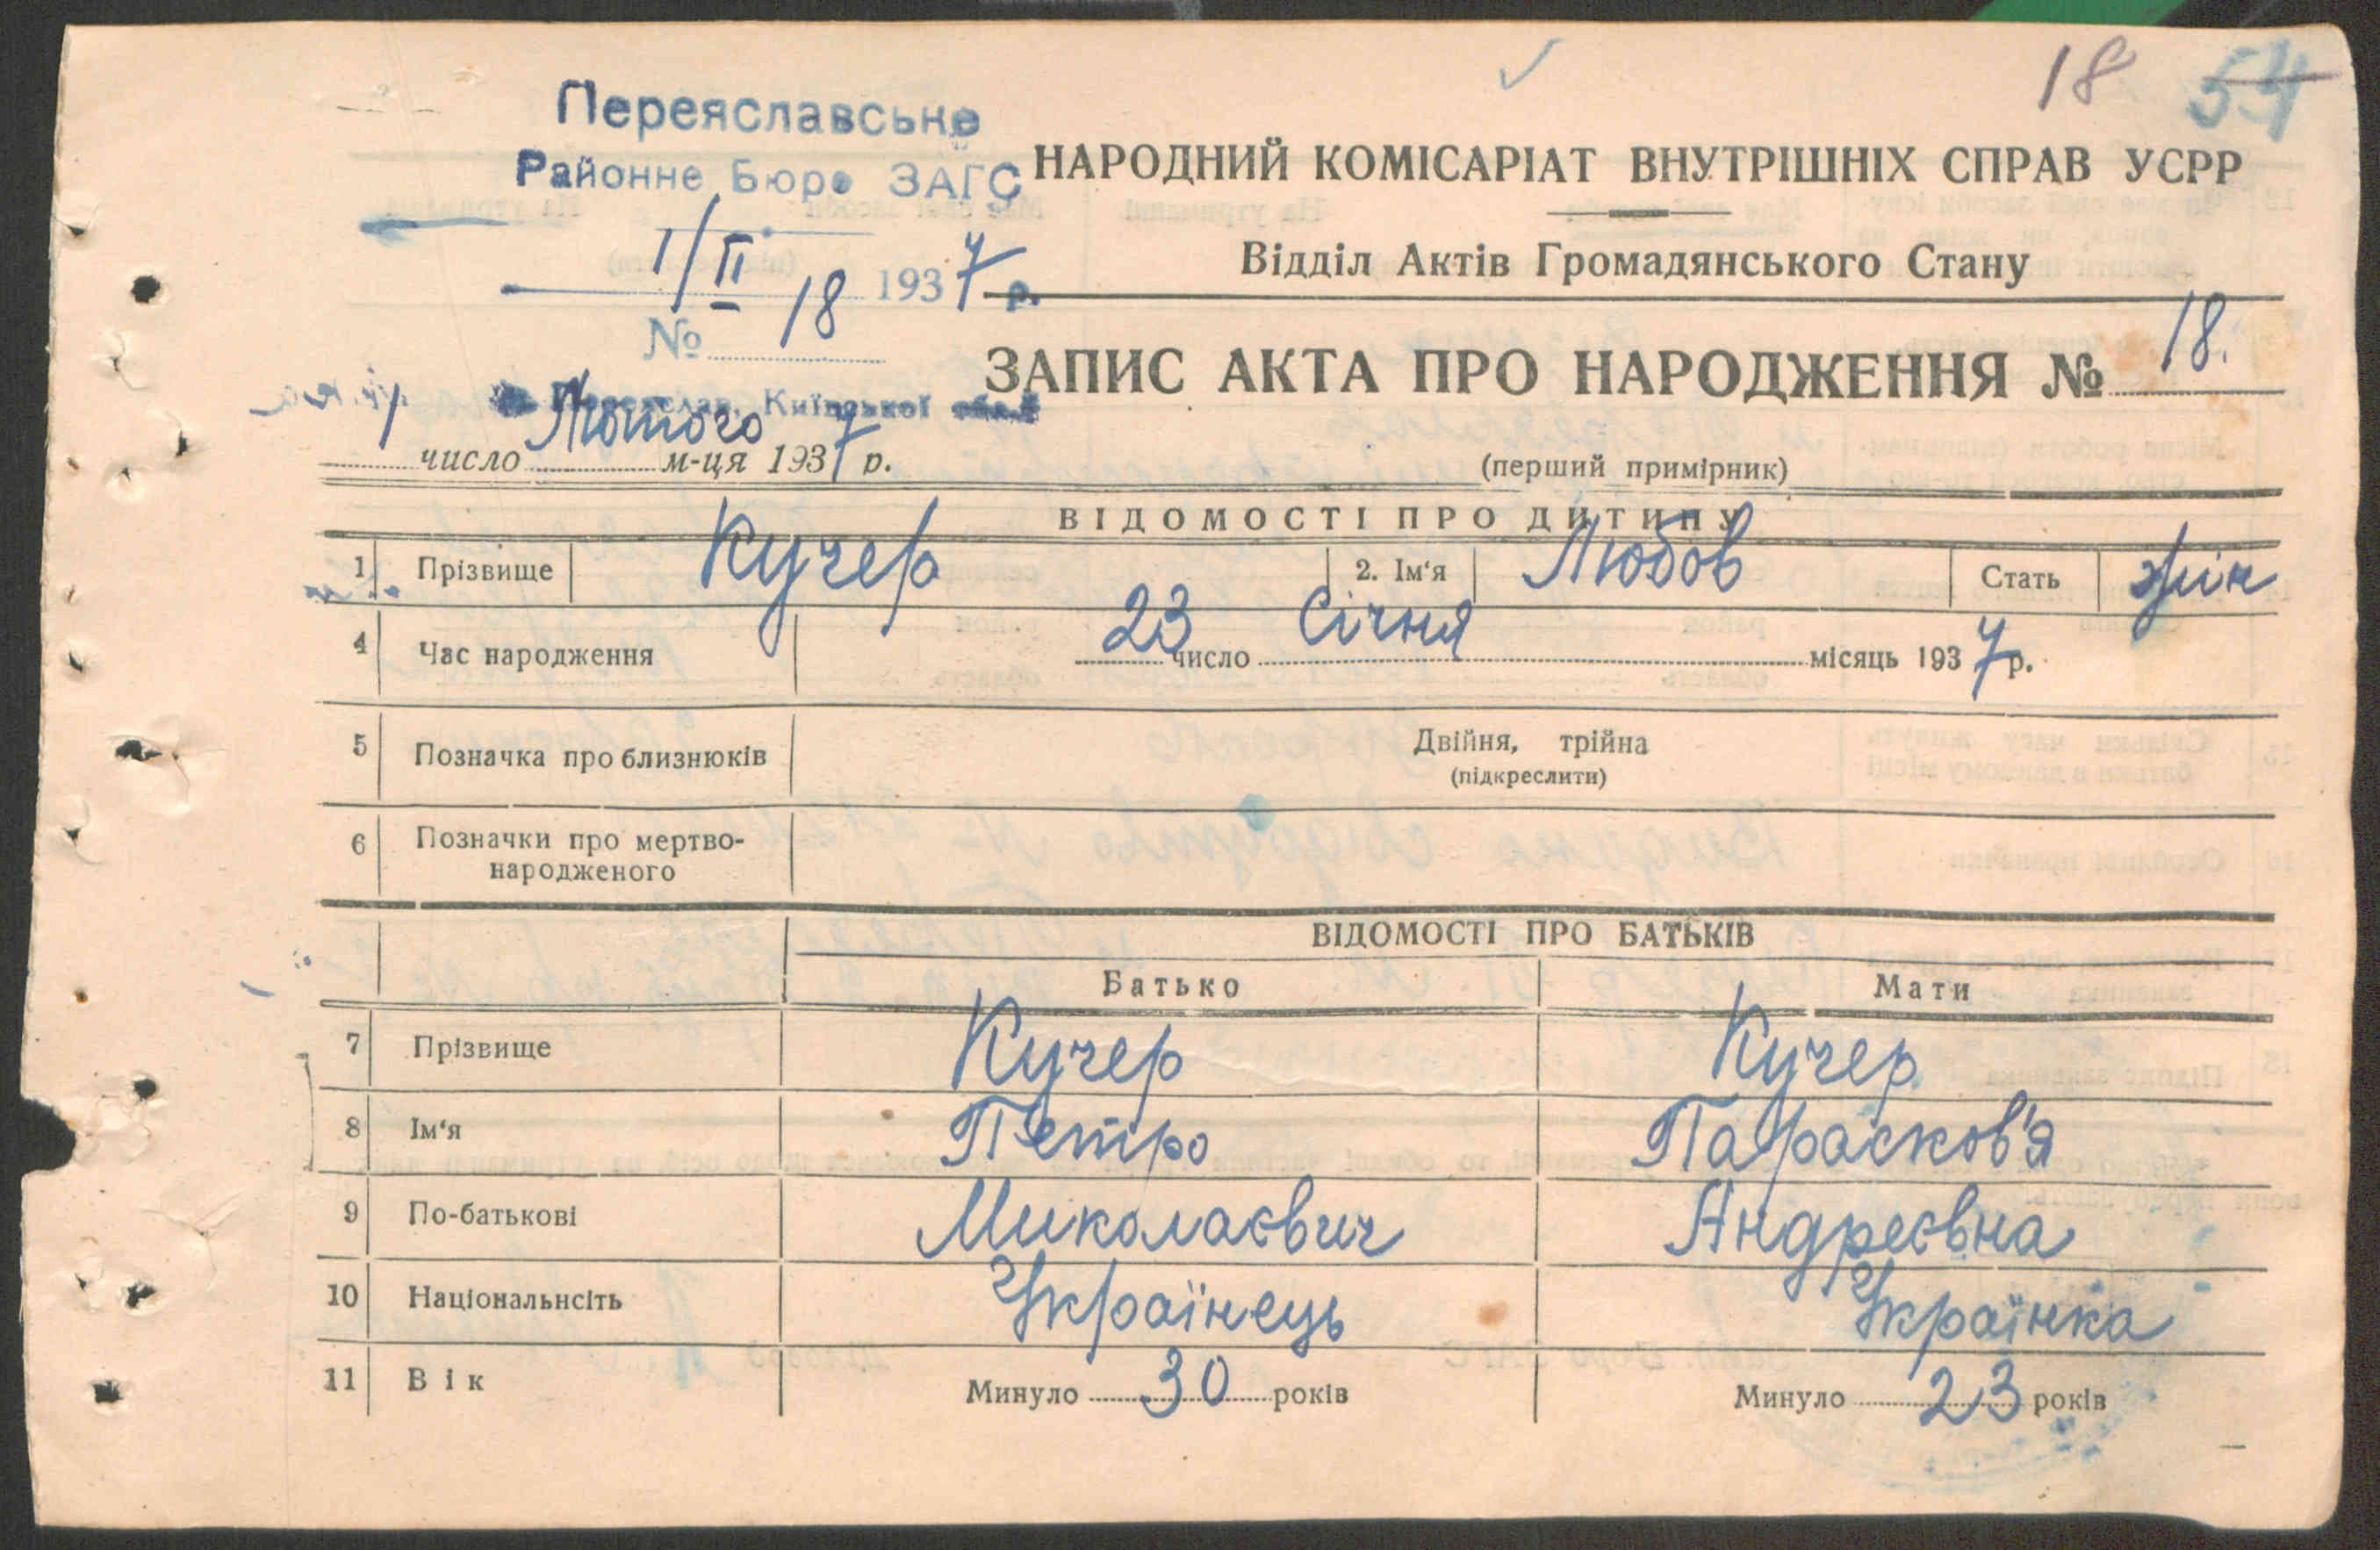 18 54
Переяславське
Районне Бюро ЗАГС
1/II 1937 р.
№ 18
Переяслав, Київської обл.
НАРОДНИЙ КОМІСАРІАТ ВНУТРІШНІХ СПРАВ УСРР
Відділ Актів Громадянського Стану
ЗАПИС АКТА ПРО НАРОДЖЕННЯ № 18.
1 число Лютого м-ця 1937 р.
(перший примірник)
ВІДОМОСТІ ПРО ДИТИНУ
1 Прізвище Кучер 2. Ім'я Любов Стать жін
4 Час народження 23 число Січня місяць 1937 р.
5 Позначка про близнюків Двійня, трійна
(підкреслити)
6 Позначки про мертво-
народженого
ВІДОМОСТІ ПРО БАТЬКІВ
Батько Мати
7 Прізвище Кучер Кучер
8 Ім'я Петро Парасков'я
9 По-батькові Миколаєвич Андреєвна
10 Національнсіть Українець Українка
11 Вік Минуло 30 років Минуло 23 років